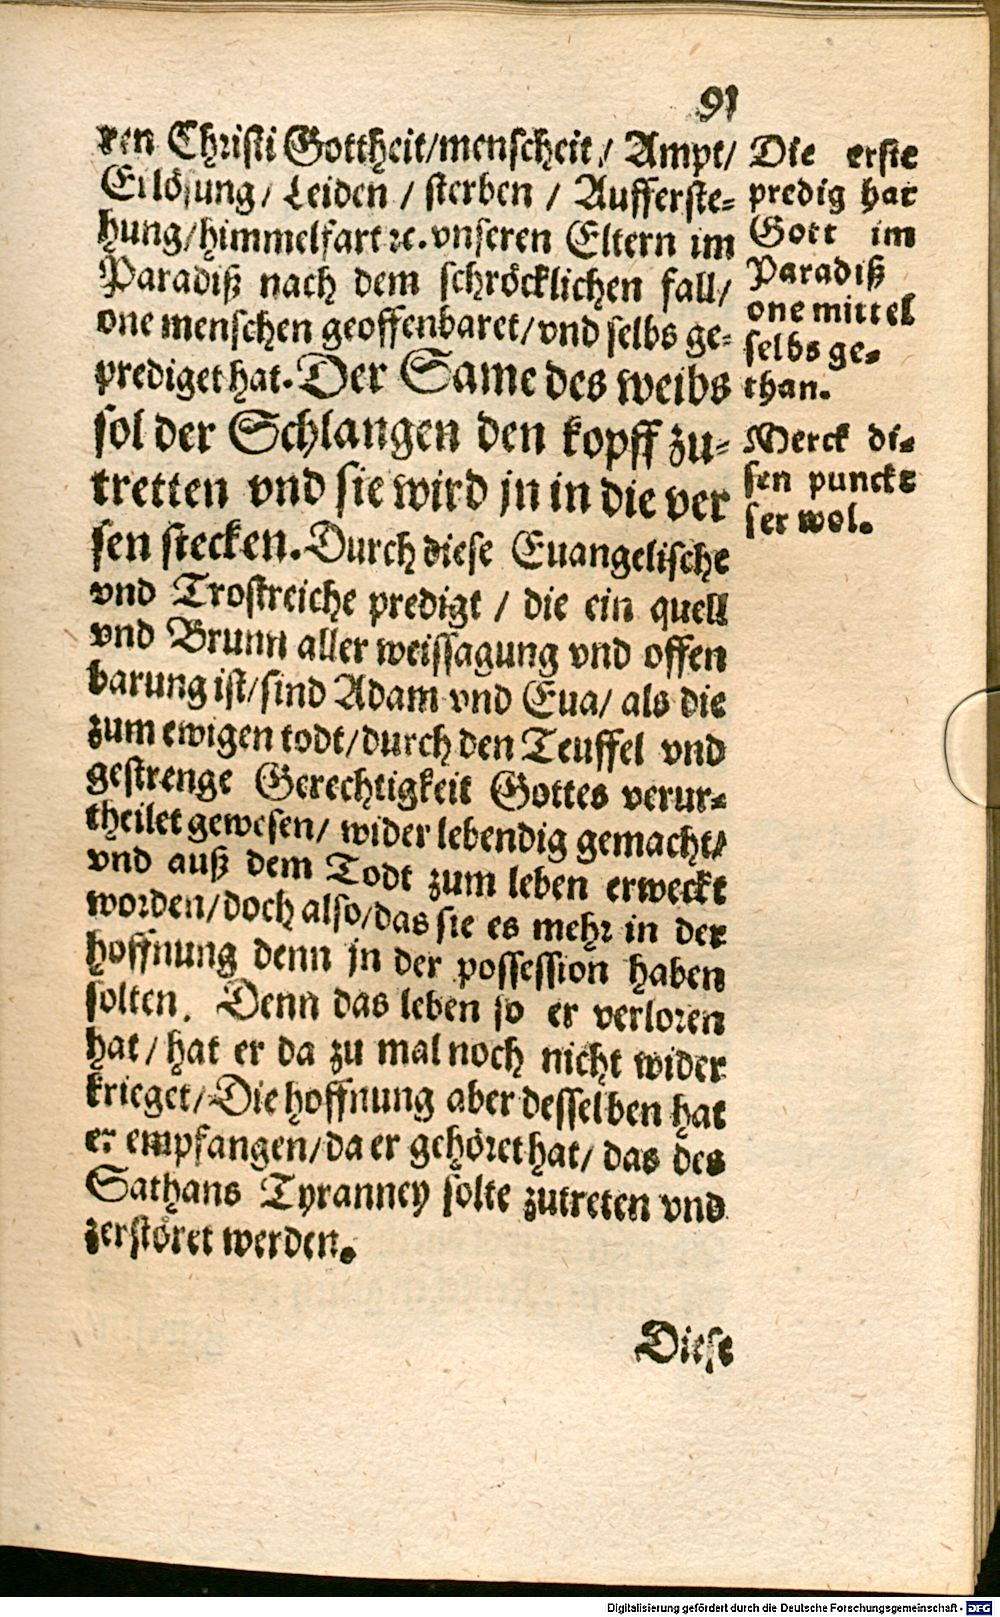 91
ren Christi Gottheit/menscheit/ Ampt/
Erlösung/ Leiden / sterben / Aufferste=
hung/himmelfart ꝛc. vnseren Eltern im
Paradiß nach dem schröcklichen fall/
one menschen geoffenbaret/vnd selbs ge=
prediget hat. Der Same des weibs
sol der Schlangen den kopff zu=
tretten vnd sie wird jn in die ver
sen stecken. Durch diese Euangelische
vnd Trostreiche predigt / die ein quell
vnd Brunn aller weissagung vnd offen
barung ist/sind Adam vnd Eua/ als die
zum ewigen todt/durch den Teuffel vnd
gestrenge Gerechtigkeit Gottes verur=
theilet gewesen/ wider lebendig gemacht/
vnd auß dem Todt zum leben erweckt
worden/doch also/das sie es mehr in der
hoffnung denn jn der possession haben
solten. Denn das leben so er verloren
hat/ hat er da zu mal noch nicht wider
krieget/Die hoffnung aber desselben hat
er empfangen/da er gehöret hat/ das des
Sathans Tyranney solte zutreten vnd
zerstöret werden.
Diese
Die erste
predig hat
Gott im
Paradiß
one mittel
selbs ge=
than.
Merck di=
sen punckt
ser wol.
Digitalisierung gefördert durch die Deutsche Forschungsgemeinschaft - DFG